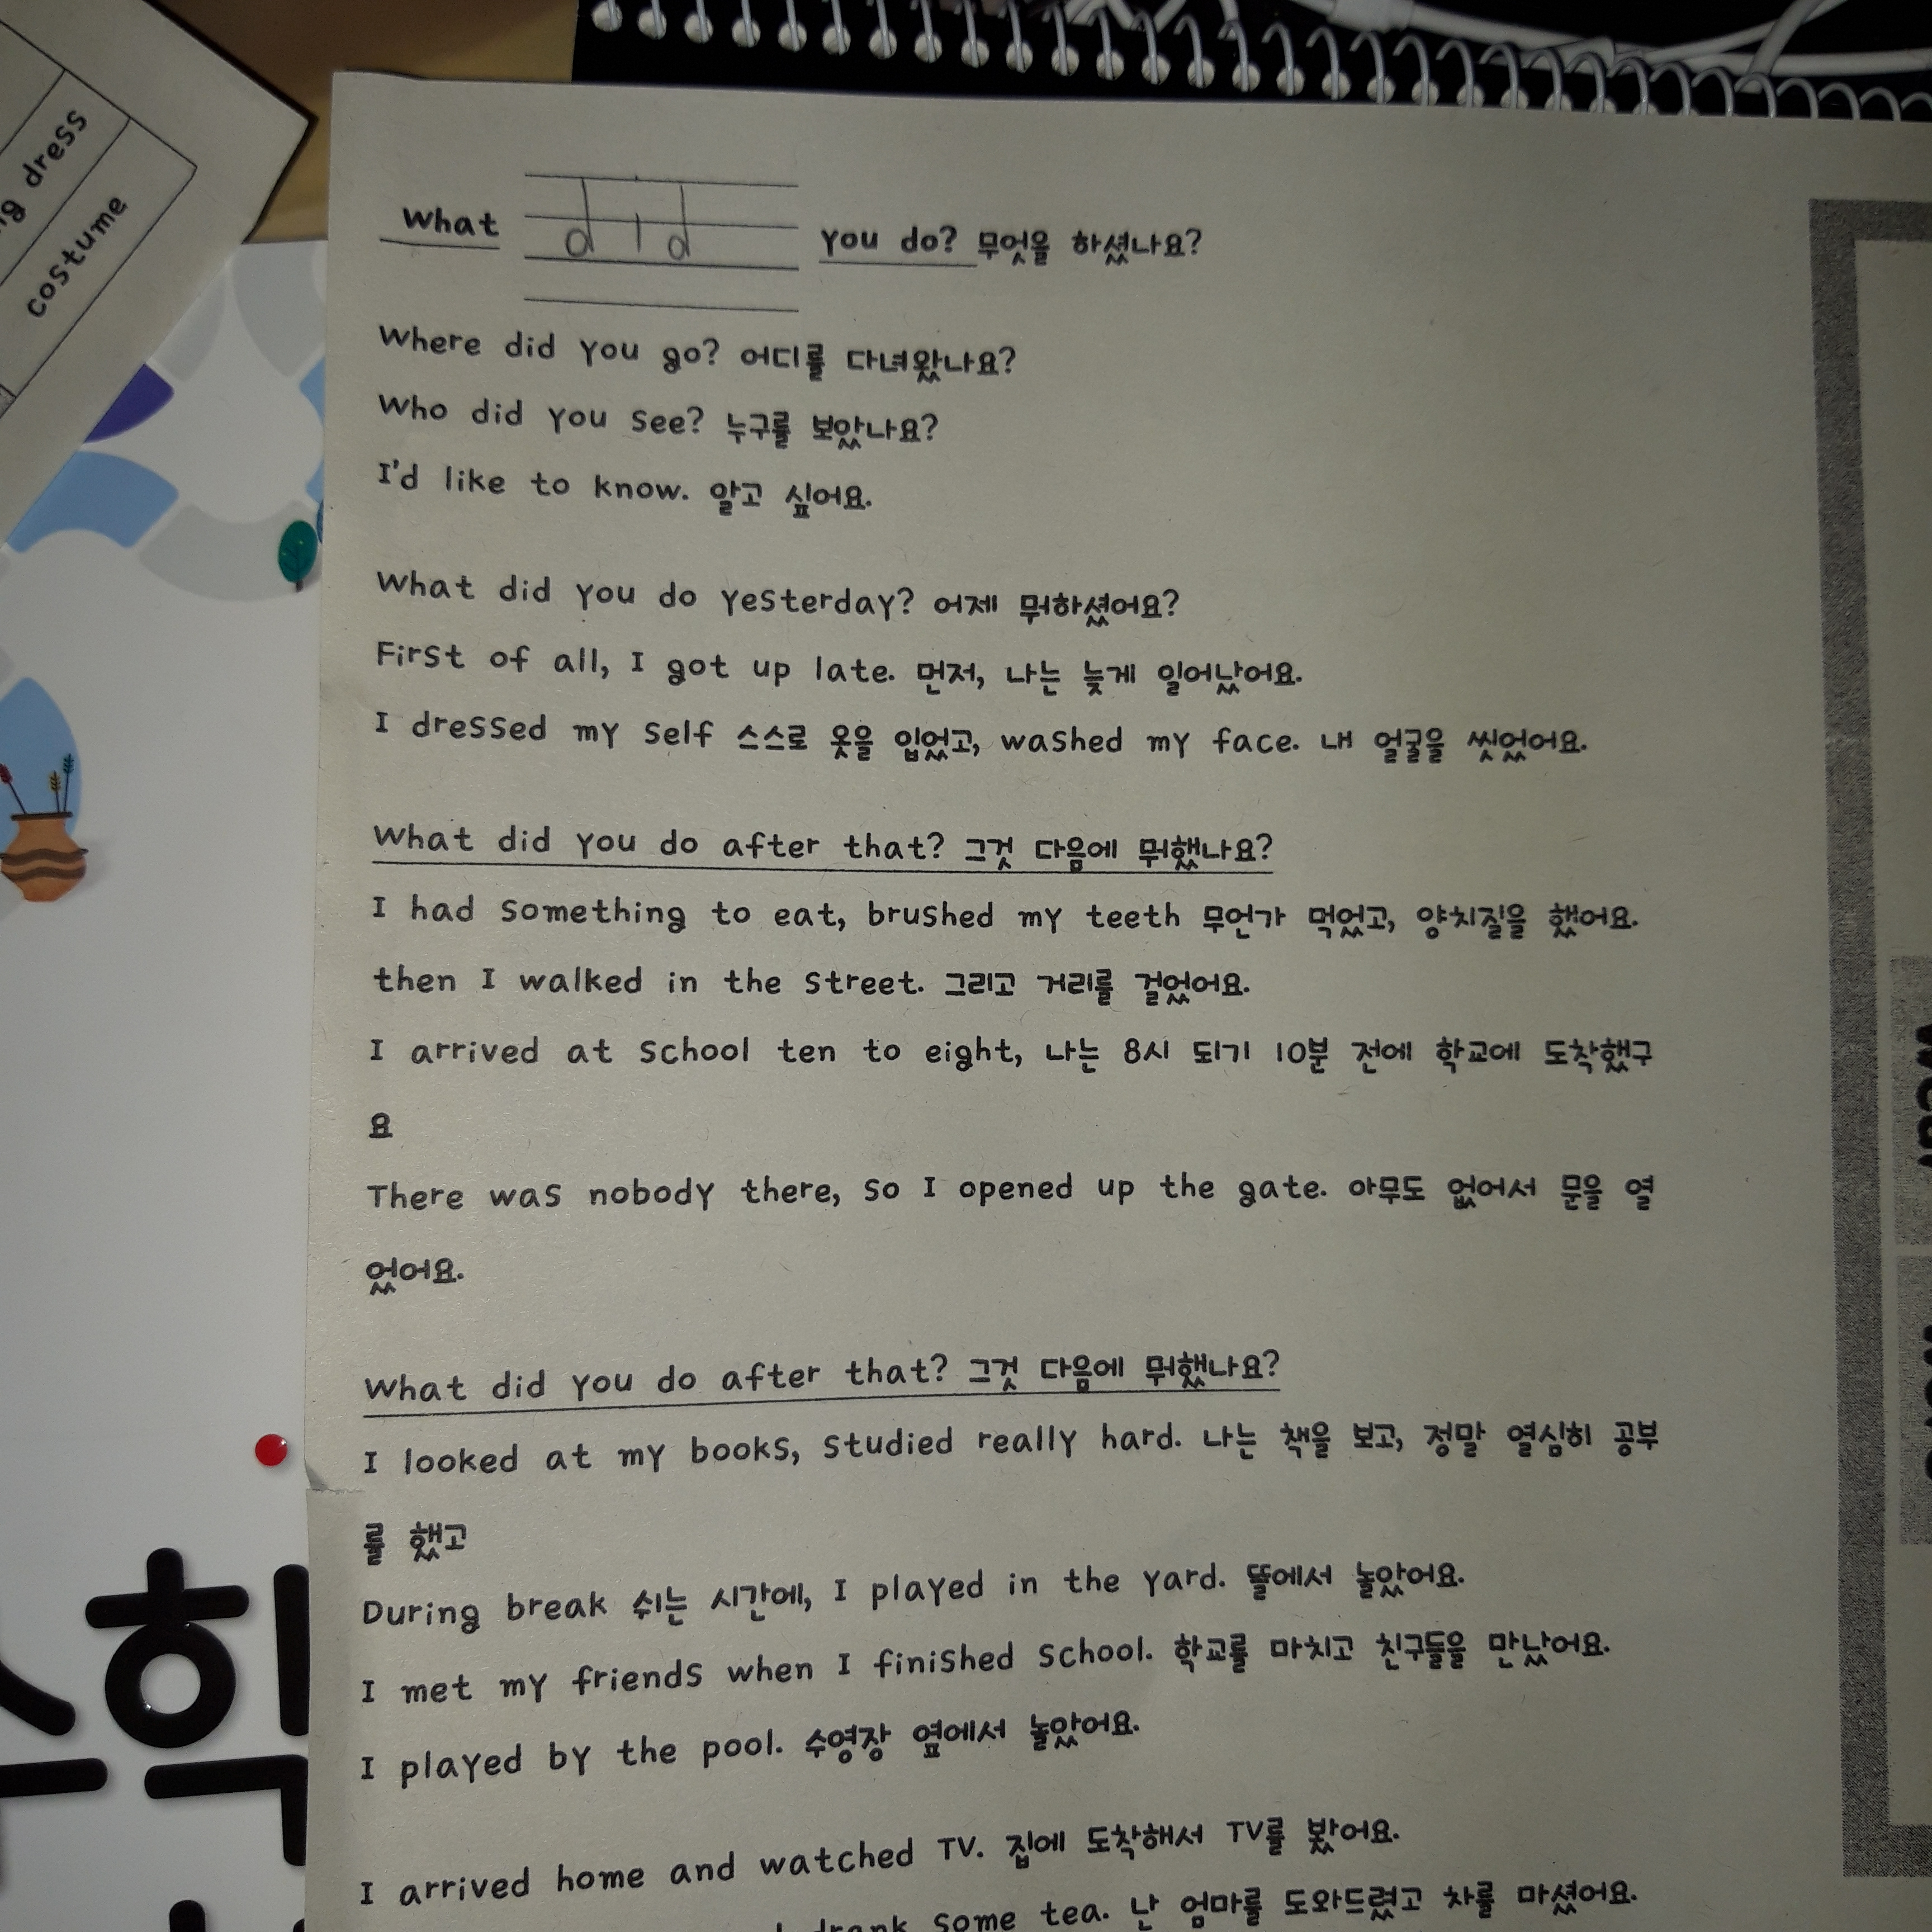 g dress
costume
What did you do? 무엇을 하셨나요?
Where did you go? 어디를 다녀왔나요?
Who did you see? 누구를 보았나요?
I'd like to know. 알고 싶어요.
What did you do yesterday? 어제 뭐하셨어요?
First of all, I got up late. 먼저, 나는 늦게 일어났어요.
I dressed my self 스스로 옷을 입었고, washed my face. 내 얼굴을 씻었어요.
What did you do after that? 그것 다음에 뭐했나요?
I had something to eat, brushed my teeth 무언가 먹었고, 양치질을 했어요.
then I walked in the street. 그리고 거리를 걸었어요.
I arrived at school ten to eight, 나는 8시 되기 10분 전에 학교에 도착했구
요
There was nobody there, so I opened up the gate. 아무도 없어서 문을 열
었어요.
What did you do after that? 그것 다음에 뭐했나요?
I looked at my books, studied really hard. 나는 책을 보고, 정말 열심히 공부
를 했고
During break 쉬는 시간에, I played in the yard. 뜰에서 놀았어요.
I met my friends when I finished school. 학교를 마치고 친구들을 만났어요.
I played by the pool. 수영장 옆에서 놀았어요.
I arrived home and watched TV. 집에 도착해서 TV를 봤어요.
drank some tea. 난 엄마를 도와드렸고 차를 마셨어요.